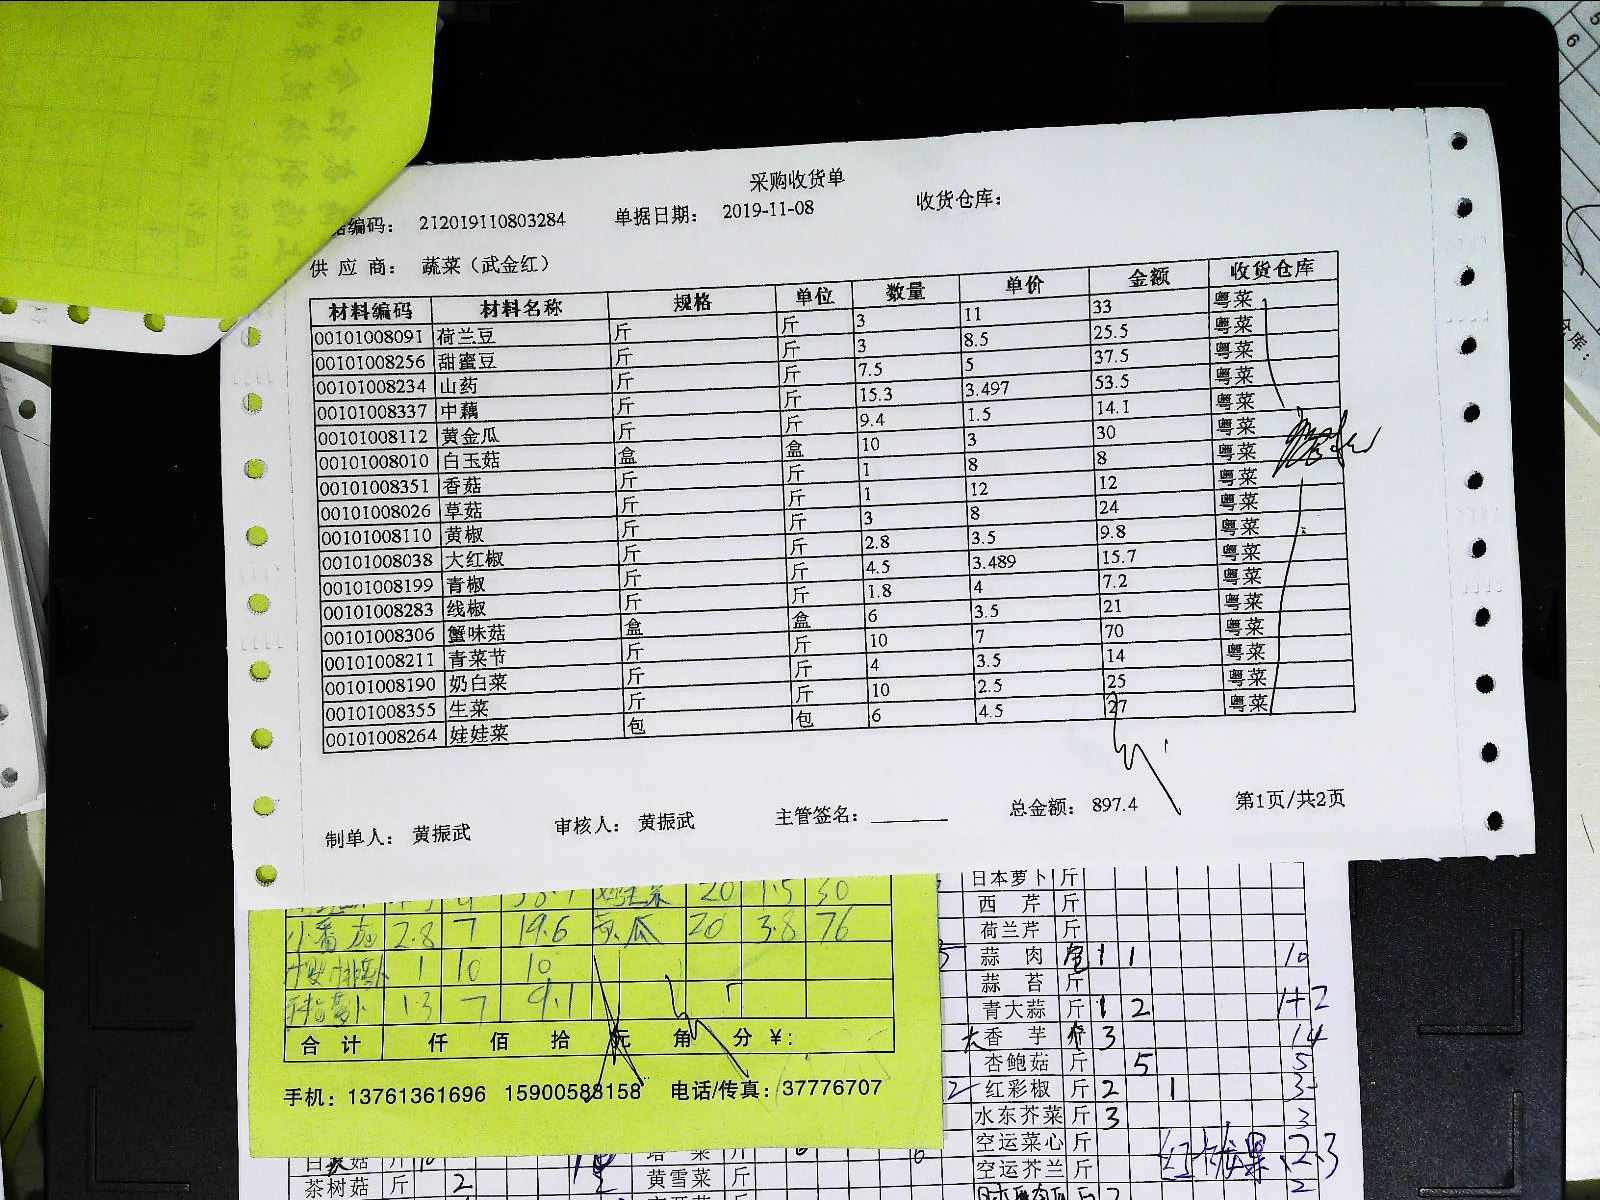 采购收货单
编码： 212019110803284 单据日期： 2019-11-08 收货仓库：
供 应 商： 蔬菜（武金红）
材料编码 材料名称 规格 单位 数量 单价 金额 收货仓库
00101008091 荷兰豆 斤 斤 3 11 33 粤菜
00101008256 甜蜜豆 斤 斤 3 8.5 25.5 粤菜
00101008234 山药 斤 斤 7.5 5 37.5 粤菜
00101008337 中藕 斤 斤 15.3 3.497 53.5 粤菜
00101008112 黄金瓜 斤 斤 9.4 1.5 14.1 粤菜
00101008010 白玉菇 盒 盒 10 3 30 粤菜
00101008351 香菇 斤 斤 1 8 8 粤菜
00101008026 草菇 斤 斤 1 12 12 粤菜
00101008110 黄椒 斤 斤 3 8 24 粤菜
00101008038 大红椒 斤 斤 2.8 3.5 9.8 粤菜
00101008199 青椒 斤 斤 4.5 3.489 15.7 粤菜
00101008283 线椒 斤 斤 1.8 4 7.2 粤菜
00101008306 蟹味菇 盒 盒 6 3.5 21 粤菜
00101008211 青菜节 斤 斤 10 7 70 粤菜
00101008190 奶白菜 斤 斤 4 3.5 14 粤菜
00101008355 生菜 斤 斤 10 2.5 25 粤菜
00101008264 娃娃菜 包 包 6 4.5 27 粤菜
制单人： 黄振武 审核人： 黄振武 主管签名： 总金额： 897.4 第1页/共2页
20 1.5 30
小番茄 2.8 7 19.6 黄瓜 20 3.8 76
1 10 10
手指萝卜 1.3 7 9.1
合 计 仟 佰 拾 元 角 分 ¥:
手机：13761361696 15900588158 电话/传真：37776707
日本萝卜 斤
西 芹 斤
荷兰芹 斤
蒜 肉 包 1 1 10
蒜 苔 斤
青大蒜 斤 1 2 1+2
大香 芋 个 3 14
杏鲍菇 斤 5 5
红彩椒 斤 2 1 3
水东芥菜 斤 3 3
空运菜心 斤
空运芥兰 斤
茶树菇 斤 2
黄雪菜 斤